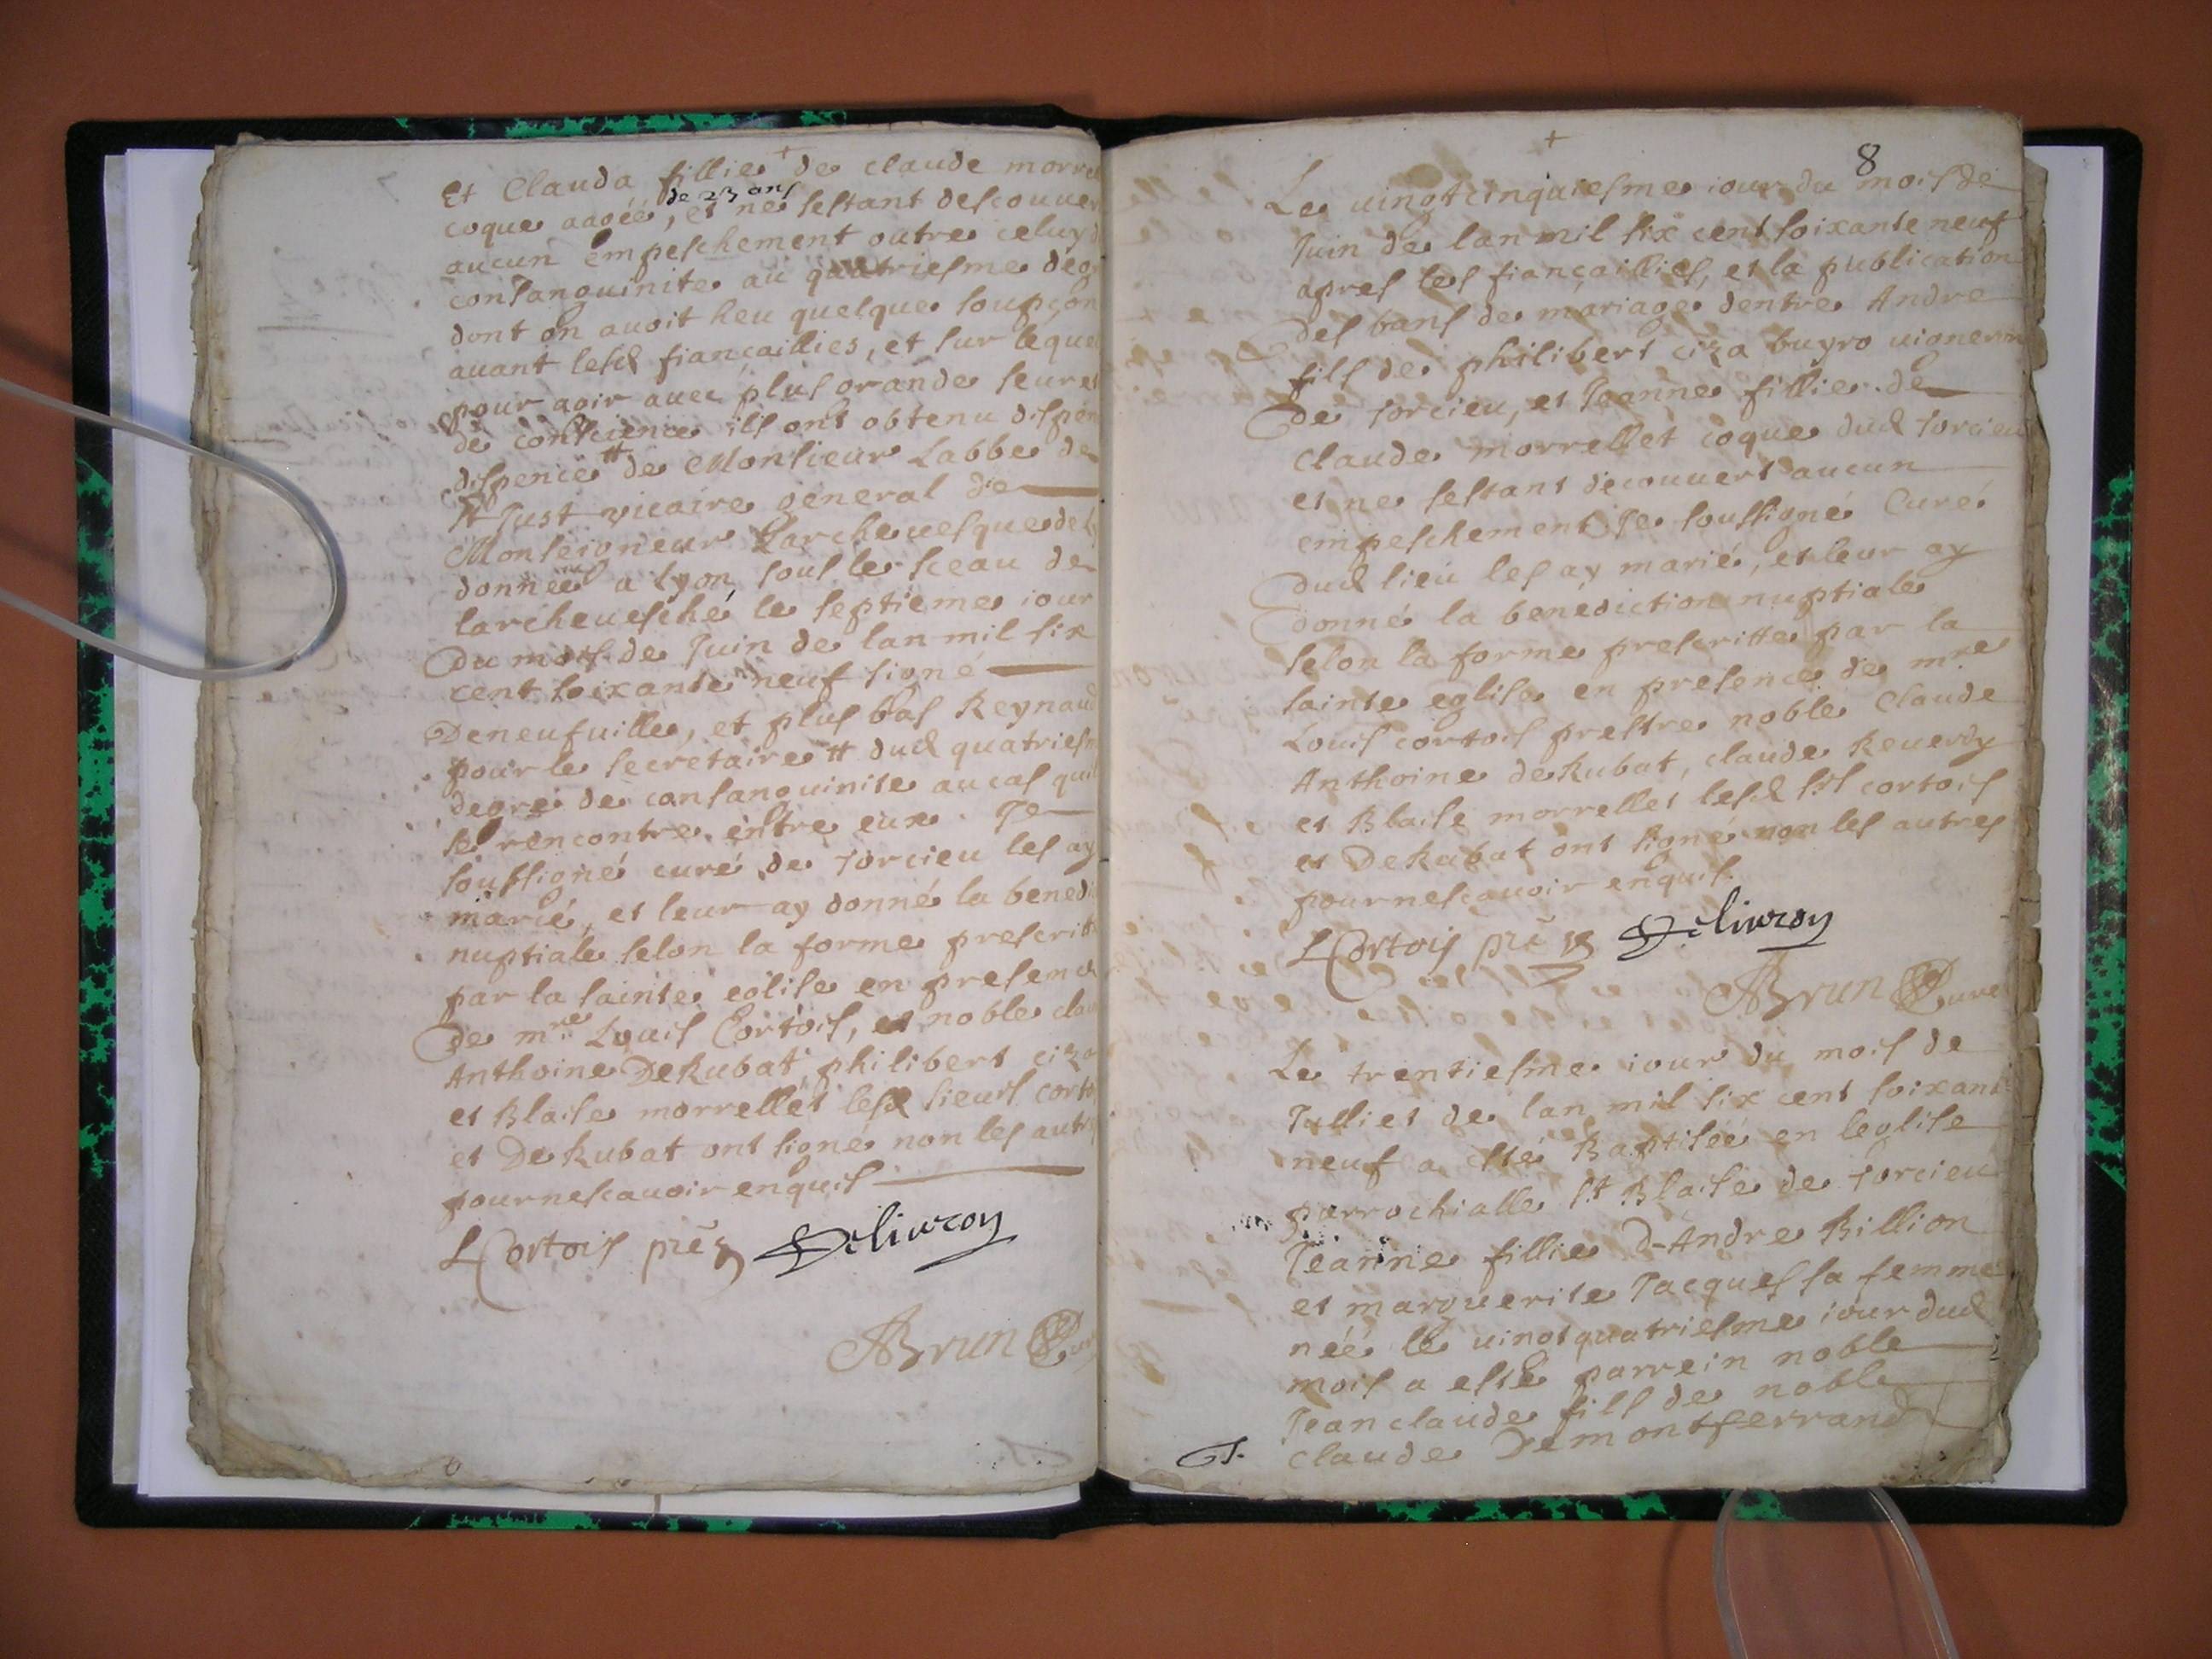 +
Et Clauda fillie de claude morre
de 23 ans
coque aagéé, et ne sestant descouuer
aucun empeschement outre celuy d
consanguinite au quatriesme deg
dont on auoit heu quelque soupçon
auant lesd fiançaillies, et sur leque
pour agir auec plus grande seuret
de conscience ils ont obtenu dispen
dispence # de Monsieur Labbe de
st Just vicaire general de
Monseigneur Larcheuesque de
donneé a lyon sous le sceau de
larcheuesché le septieme iour
du mois de Juin de lan mil six
cent soixante neuf signé
Deneufuille, et plus bas Reynaud
pour le secretaire # dud quatriesm
degre de consanguinite au cas quil
se rencontre entre eux. Je
soussigné curé de torcieu les ay
marié, et leur ay donné la benedi
nuptiale selon la forme prescritt
par la sainte eglise en presence
de mre Louis Cortois, et noble cla
Anthoine DeRubat philibert ciza
et Blaise morrellet lesd sieurs corto
et DeRubat ont signé non les autres
pour ne scauoir enquis
L Cortois pre Deliuron
ABrun Cure
+
8
Le uingtcinquiesme iour du mois de
Juin de lan mil six cent soixante neuf
apres les fiançaillies, et la publication
des bans de mariage dentre Andre
fils de philibert ciza buyro uigneron
de torcieu, et Jeanne fillie de
claude morrellet coque dud torcieu
et ne sestant decouuert aucun
empeschement Je soussigné Curé
dud lieu les ay marié, et leur ay
donné la benediction nuptiale
selon la forme prescritte par la
sainte eglise en presence de mre
Louis cortois prestre noble Claude
Anthoine deRubat, claude Reuerdy
et Blaise morrellet lesd srs cortois
et DeRubat ont signé non les autres
pour ne scauoir enquis.
L Cortois pre Deliuron
ABrun Cure
Le trentiesme iour du mois de
Julliet de lan mil six cent soixant
neuf a esté Baptiseé en leglise
parrochialle st Blaise de torcieu
Jeanne fillie D-Andre Billion
et marguerite Jacques sa femme
néé le uingtquatriesme iour dud
mois a esté parrein noble
Jean claude fils de noble
claude Demontferrand